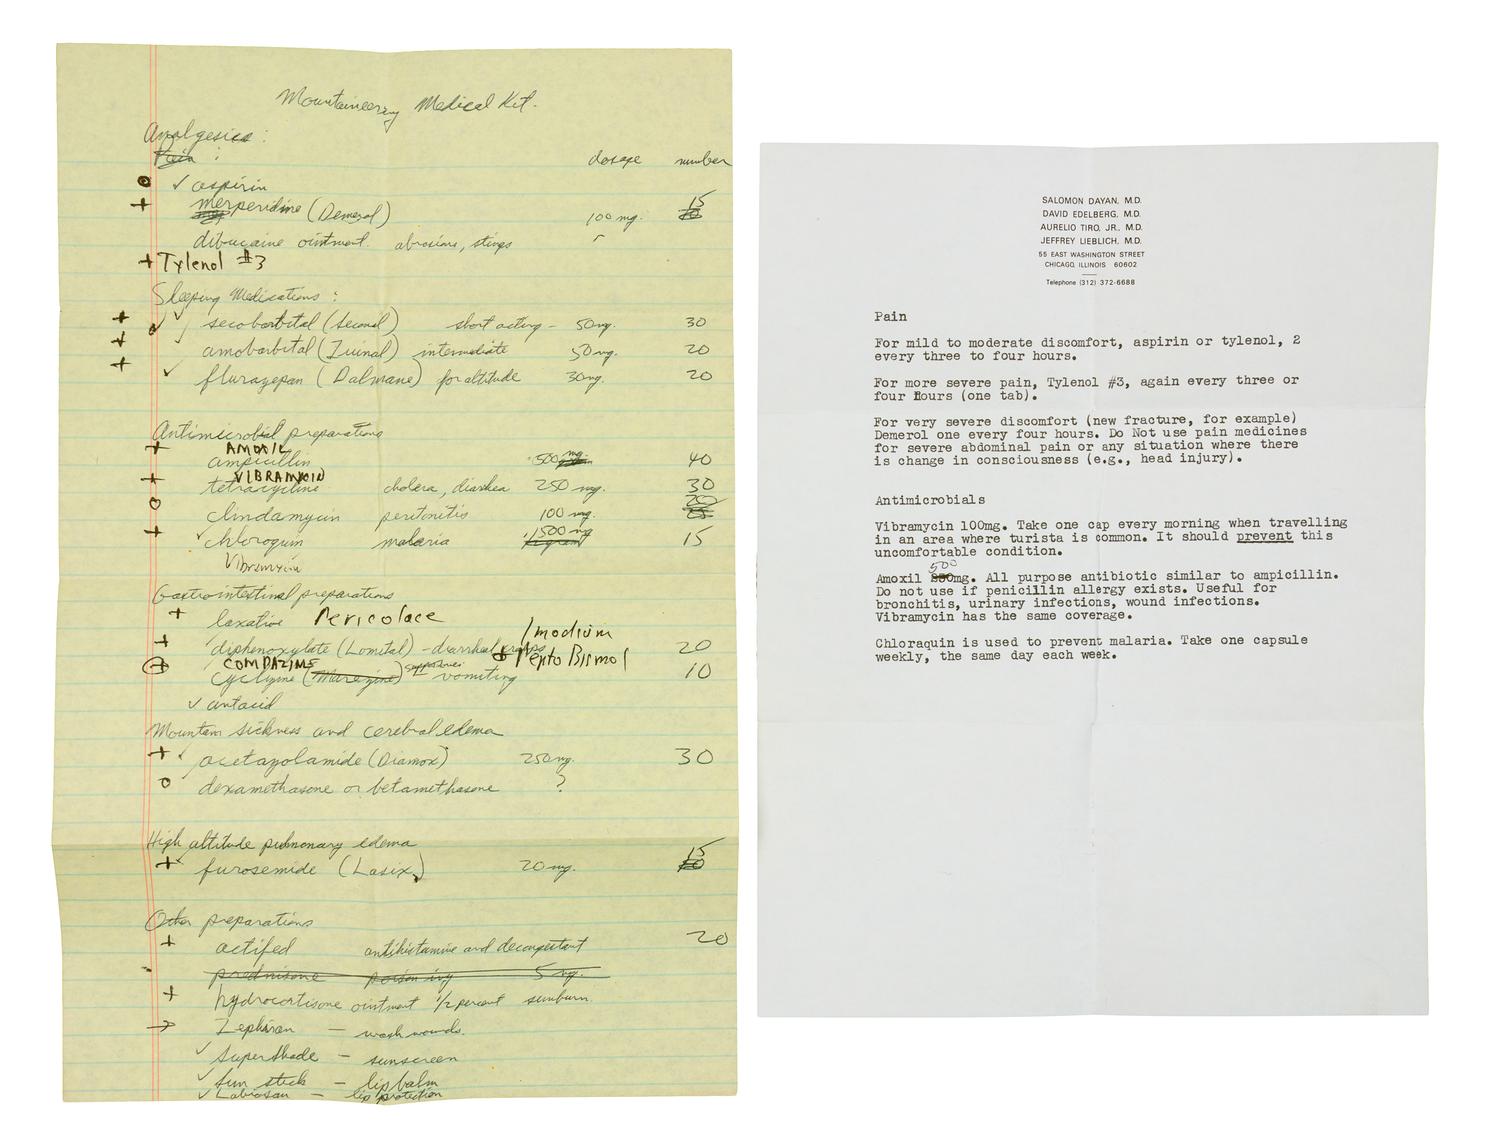 Mountaineering Medical Kit.
Analgesics:
Pain :
dosage number
✓ aspirin
merperidine (Demerol) 100 mg. 15
dibucaine ointment. abrasions, stings
+ Tylenol #3
Sleeping Medications :
secobarbital (Seconal) short acting - 50mg. 30
amobarbital (Tuinal) intermediate 50mg. 20
✓ flurazepan (Dalmane) for altitude 30mg. 20
Antimicrobial preparations
+ AMOXIL
ampicillin 500 mg 40
+ VIBRAMYCIN
tetracycline cholera, diarrhea 250 mg. 30
clindamycin peritonitis 100 mg. 20
+ ✓ chloroquin malaria 500 mg 15
Vibramycin
Gastrointestinal preparations
+ laxative Pericolace
Imodium
+ diphenoxylate (Lomital) - diarrhea/ cramps 20
+ Pepto Bismol
COMPAZINE
cyclizine (Marezine) suppositories vomiting 10
✓ antacid
Mountain sickness and cerebral edema
+ ✓ acetazolamide (Diamox) 250mg. 30
o dexamethasone or betamethasone ?
High altitude pulmonary edema
+ ✓ furosemide (Lasix) 20 mg. 15
Other preparations
+ actifed antihistamine and decongestant 20
prednisone poison ivy 5 mg.
+ hydrocortisone ointment 1/2 percent sunburn.
→ Zephiran — wash wounds.
✓ Supershade — sunscreen
✓ Sun stick — lip balm
✓ Labiosan — lip protection
SALOMON DAYAN, M.D.
DAVID EDELBERG, M.D.
AURELIO TIRO, JR., M.D.
JEFFREY LIEBLICH, M.D.
55 EAST WASHINGTON STREET
CHICAGO, ILLINOIS 60602
Telephone (312) 372-6688
Pain
For mild to moderate discomfort, aspirin or tylenol, 2
every three to four hours.
For more severe pain, Tylenol #3, again every three or
four hours (one tab).
For very severe discomfort (new fracture, for example)
Demerol one every four hours. Do Not use pain medicines
for severe abdominal pain or any situation where there
is change in consciousness (e.g., head injury).
Antimicrobials
Vibramycin 100mg. Take one cap every morning when travelling
in an area where turista is common. It should prevent this
uncomfortable condition.
500
Amoxil 250mg. All purpose antibiotic similar to ampicillin.
Do not use if penicillin allergy exists. Useful for
bronchitis, urinary infections, wound infections.
Vibramycin has the same coverage.
Chloraquin is used to prevent malaria. Take one capsule
weekly, the same day each week.